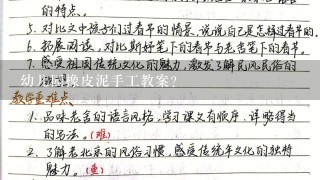 的特点。
5、对比文中孩子们过春节的情景，说说自己是怎样过春节的。
6、拓展阅读，对比斯好笔下的春节与老舍笔下的春节。
7、感受祖国传统文化的魅力，激发了解民风民俗的
幼儿园橡皮泥手工教案?
教学重难点
1、品味老舍的语言风格，学习课文有顺序、详略得当
的写法。(难)
2、了解老北京的风俗习惯，感受传统年文化的独特
魅力。(重)